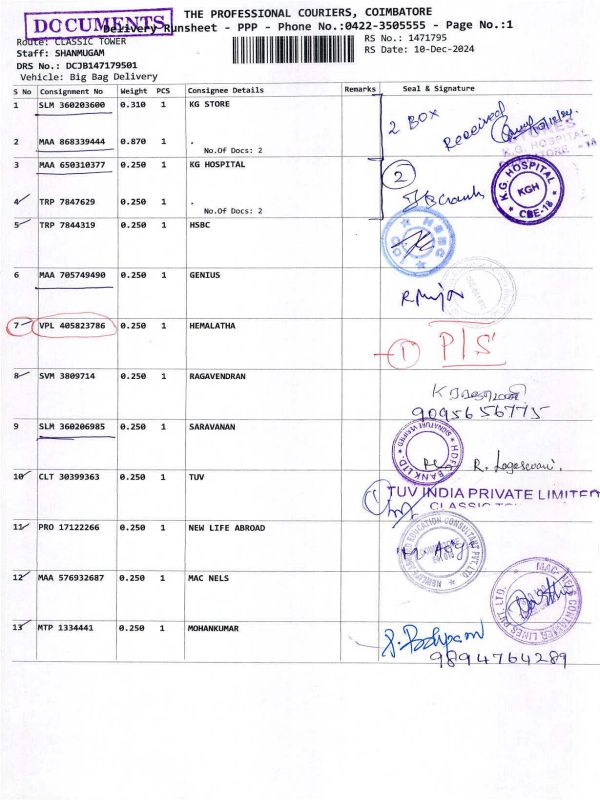 DOCUMENTS
THE PROFESSIONAL COURIERS, COIMBATORE
Delivery Runsheet - PPP - Phone No.:0422-3505555 - Page No.:1
Route: CLASSIC TOWER
RS No.: 1471795
Staff: SHANMUGAM
RS Date: 10-Dec-2024
DRS No.: DCJB147179501
Vehicle: Big Bag Delivery
S No Consignment No Weight PCS Consignee Details Remarks Seal & Signature
1 SLM 360203600 0.310 1 KG STORE
2 BOX Received
2 MAA 868339444 0.870 1 .
No.Of Docs: 2
K.G. HOSPITAL
3 MAA 650310377 0.250 1 KG HOSPITAL
2
K.G. HOSPITAL KGH CBE-18
4 TRP 7847629 0.250 1 .
No.Of Docs: 2
5 TRP 7844319 0.250 1 HSBC
HSBC
6 MAA 705749490 0.250 1 GENIUS
7 VPL 405823786 0.250 1 HEMALATHA
1 P/S
8 SVM 3809714 0.250 1 RAGAVENDRAN
9095656775
9 SLM 360206985 0.250 1 SARAVANAN
HDFC BANK LTD.
10 CLT 30399363 0.250 1 TUV
1 TUV INDIA PRIVATE LIMITED
CLASSIC
11 PRO 17122266 0.250 1 NEW LIFE ABROAD
NEW LIFE ABROAD EDUCATION CONSULTANT PVT. LTD.
12 MAA 576932687 0.250 1 MAC NELS
MAC-NELS CONTAINER LINES PVT. LTD.
13 MTP 1334441 0.250 1 MOHANKUMAR
9894764289